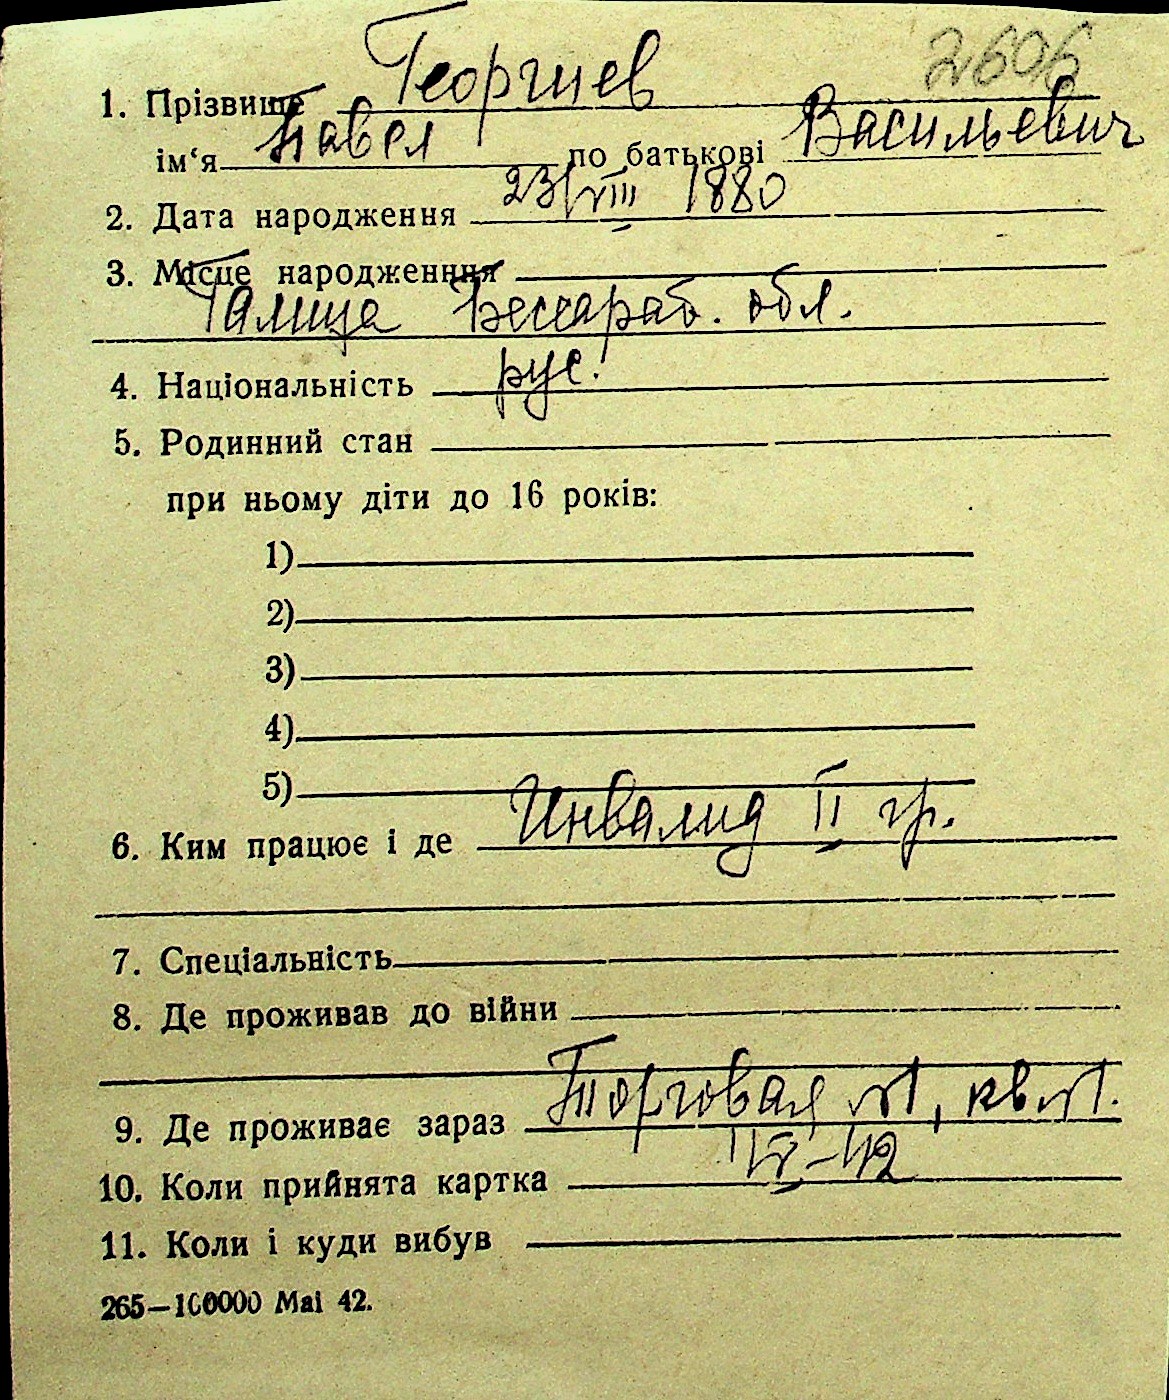 2606
1. Прізвище Георгиев
ім‘я Павел по батькові Васильевич
2. Дата народження 23/VIII 1880
3. Місце народженння
Галица Бессараб. обл.
4. Національність рус.
5. Родинний стан
при ньому діти до 16 років:
1)
2)
3)
4)
5)
6. Ким працює і де Инвалид II гр.
7. Спеціальність
8. Де проживав до війни
9. Де проживає зараз Торговая №1, кв №1.
10. Коли прийнята картка 1/V–42
11. Коли і куди вибув
265—100000 Mai 42.